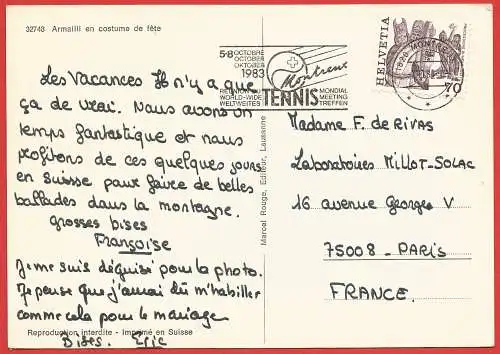 32743 Armailli en costume de fête
5-8 OCTOBRE
OCTOBRE
OKTOBER
1983
Montreux
REUNION DU
WORLD-WIDE
WELTWEITES
TENNIS
MONDIAL
MEETING
TREFFEN
HELVETIA
70
MONTREUX
Les Vacances Il n'y a que
ça de vrai. Nous avons un
temps fantastique et nous
profitons de ces quelques jours
en Suisse pour faire de belles
ballades dans la montagne.
grosses bises
Françoise
Je me suis déguisé pour la photo.
Je pense que j'aurai dû m'habiller
comme cela pour le mariage
Bises. Eric
Marcel Rouge, Editeur, Lausanne
Madame F. de RIVAS
Laboratoires MILLOT-SOLAC
16 avenue Georges V
75008 - PARIS
FRANCE.
Reproduction interdite - Imprimé en Suisse